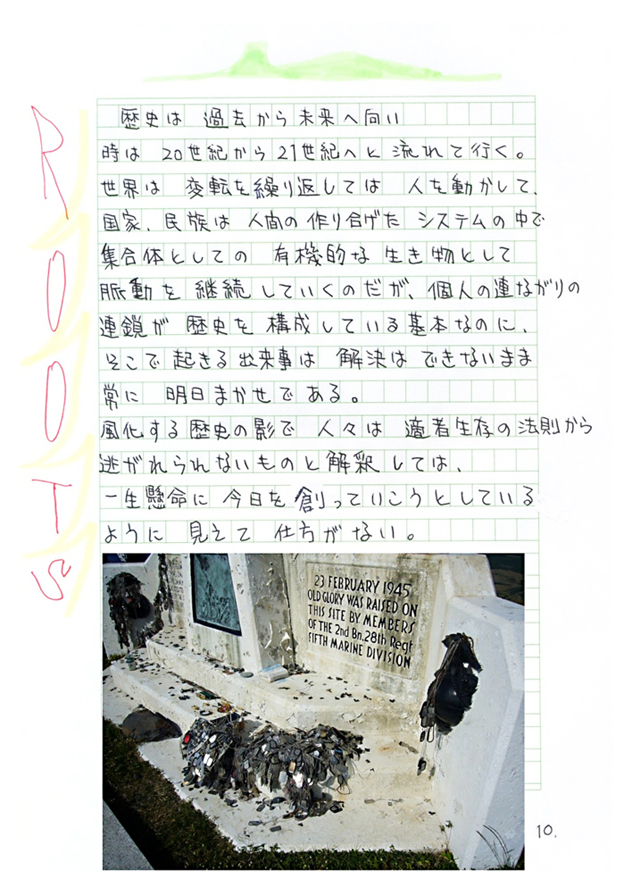 ROOTS
歴史は 過去から未来へ向い
時は 20世紀から21世紀へと 流れて行く。
世界は 変転を繰り返しては 人を動かして、
国家、民族は 人間の作り上げた システムの中で
集合体としての 有機的な 生き物として
脈動を 継続していくのだが、個人の連ながりの
連鎖が 歴史を 構成している基本なのに、
そこで起きる出来事は 解決は できないまま
常に 明日まかせである。
風化する歴史の影で 人々は 適者生存の法則から
逃がれられないものと解釈しては、
一生懸命に 今日を 創っていこうとしている
ように 見えて 仕方がない。
23 FEBRUARY 1945
OLD GLORY WAS RAISED ON
THIS SITE BY MEMBERS
OF THE 2nd Bn. 28th Regt
FIFTH MARINE DIVISION
10.